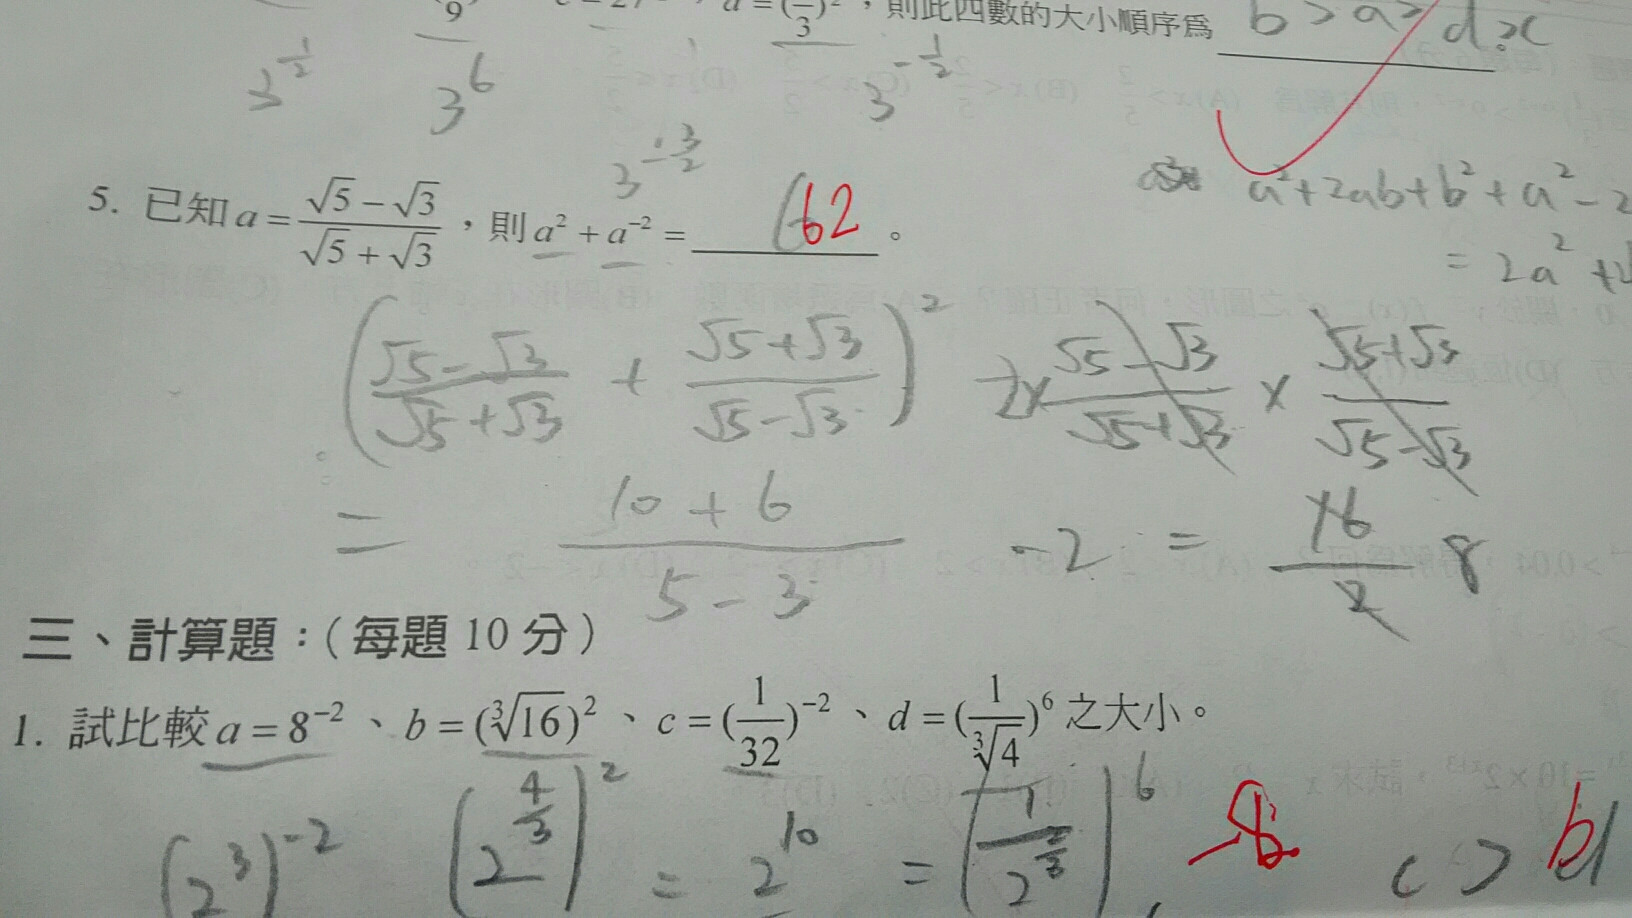 則此四數的大小順序為 b > a > d > c
3^{\frac{1}{2}} 3^6 3^{-\frac{3}{2}} 3^{-\frac{1}{2}}
5. 已知 a = \frac{\sqrt{5} - \sqrt{3}}{\sqrt{5} + \sqrt{3}}，則 a^2 + a^{-2} = 62 。
a^2 + 2ab + b^2 + a^2 - 2
= 2a^2 +
(\frac{\sqrt{5} - \sqrt{3}}{\sqrt{5} + \sqrt{3}} + \frac{\sqrt{5} + \sqrt{3}}{\sqrt{5} - \sqrt{3}})^2 - 2 × \frac{\sqrt{5} - \sqrt{3}}{\sqrt{5} + \sqrt{3}} × \frac{\sqrt{5} + \sqrt{3}}{\sqrt{5} - \sqrt{3}}
= \frac{10 + 6}{5 - 3} - 2 = \frac{16}{2} 8
三、計算題：（每題 10 分）
1. 試比較 a = 8^{-2} 、 b = (\sqrt[3]{16})^2 、 c = (\frac{1}{32})^{-2} 、 d = (\frac{1}{\sqrt[3]{4}})^6 之大小。
(2^3)^{-2} (2^{\frac{4}{3}})^2 = 2^{10} = (\frac{1}{2^{\frac{2}{3}}})^6 -8 c > b